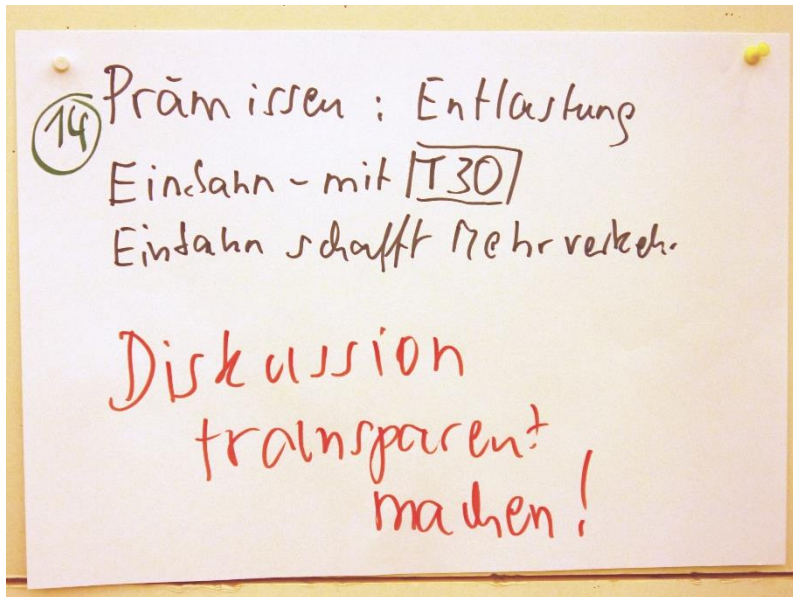 14
Prämissen: Entlastung
Einbahn - mit T30
Einbahn schafft Mehrverkehr
Diskussion
transparent
machen!